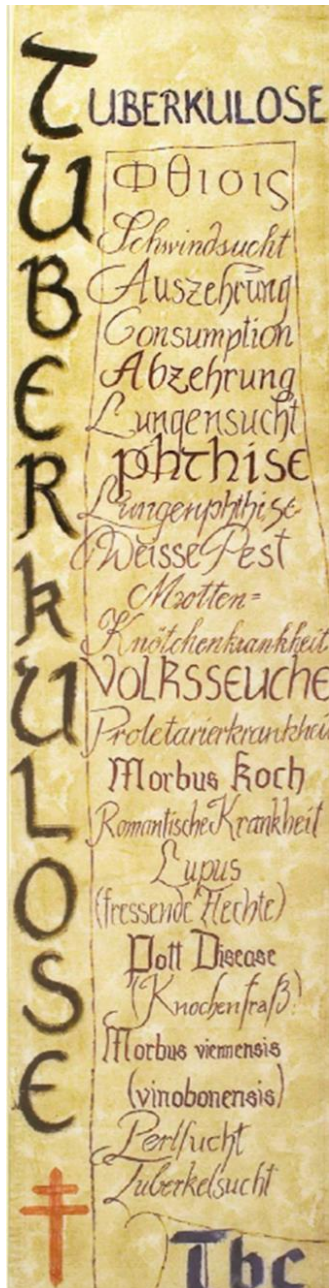 TUBERKULOSE
TUBERKULOSE
Φθισις
Schwindsucht
Auszehrung
Consumption
Abzehrung
Lungensucht
phthise
Lungenphthise
Weisse Pest
Motten=
Knötchenkrankheit
VOLKSSEUCHE
Proletarierkrankheit
Morbus Koch
Romantische Krankheit
Lupus
(fressende Flechte)
Pott Disease
(Knochenfraß)
Morbus viennensis
(vinobonensis)
Perlsucht
Tuberkelsucht
Tbc